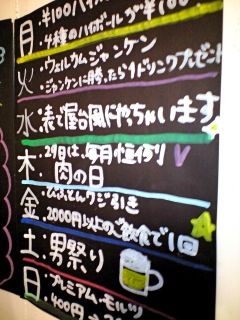 月・¥100ハイボ
・4種のハイボールが¥100
火・ウェルカムジャンケン
・ジャンケンに勝ったら1ドリンクプレゼント
水・表で屋台風にやちゃいます
木・29日は、毎月恒例
肉の日
金・くじ引き
・2000円以上のご飲食で1回
土・男祭り
日・プレミアムモルツ
400円